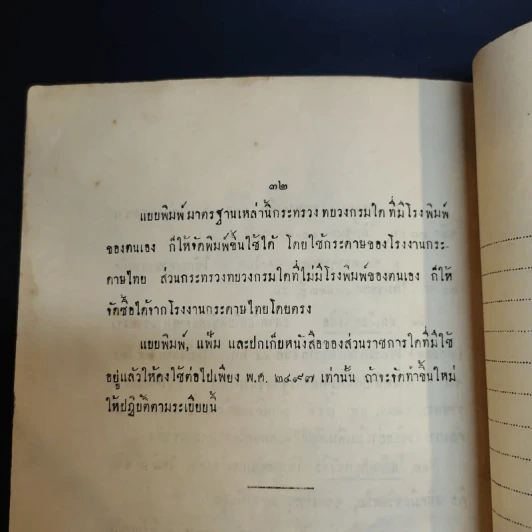 ๓๒
แบบพิมพ์มาตรฐานเหล่านี้กระทรวง ทบวงกรมใด ที่มีโรงพิมพ์
ของตนเอง ก็ให้จัดพิมพ์ขึ้นใช้ได้ โดยใช้กระดาษของโรงงานกระ-
ดาษไทย ส่วนกระทรวงทบวงกรมใดที่ไม่มีโรงพิมพ์ของตนเอง ก็ให้
จัดซื้อได้จากโรงงานกระดาษไทยโดยตรง
แบบพิมพ์, แฟ้ม และปกเก็บหนังสือของส่วนราชการใดที่มีใช้
อยู่แล้วให้คงใช้ต่อไปเพียง พ.ศ. ๒๔๙๗ เท่านั้น ถ้าจะจัดทำขึ้นใหม่
ให้ปฏิบัติตามระเบียบนี้